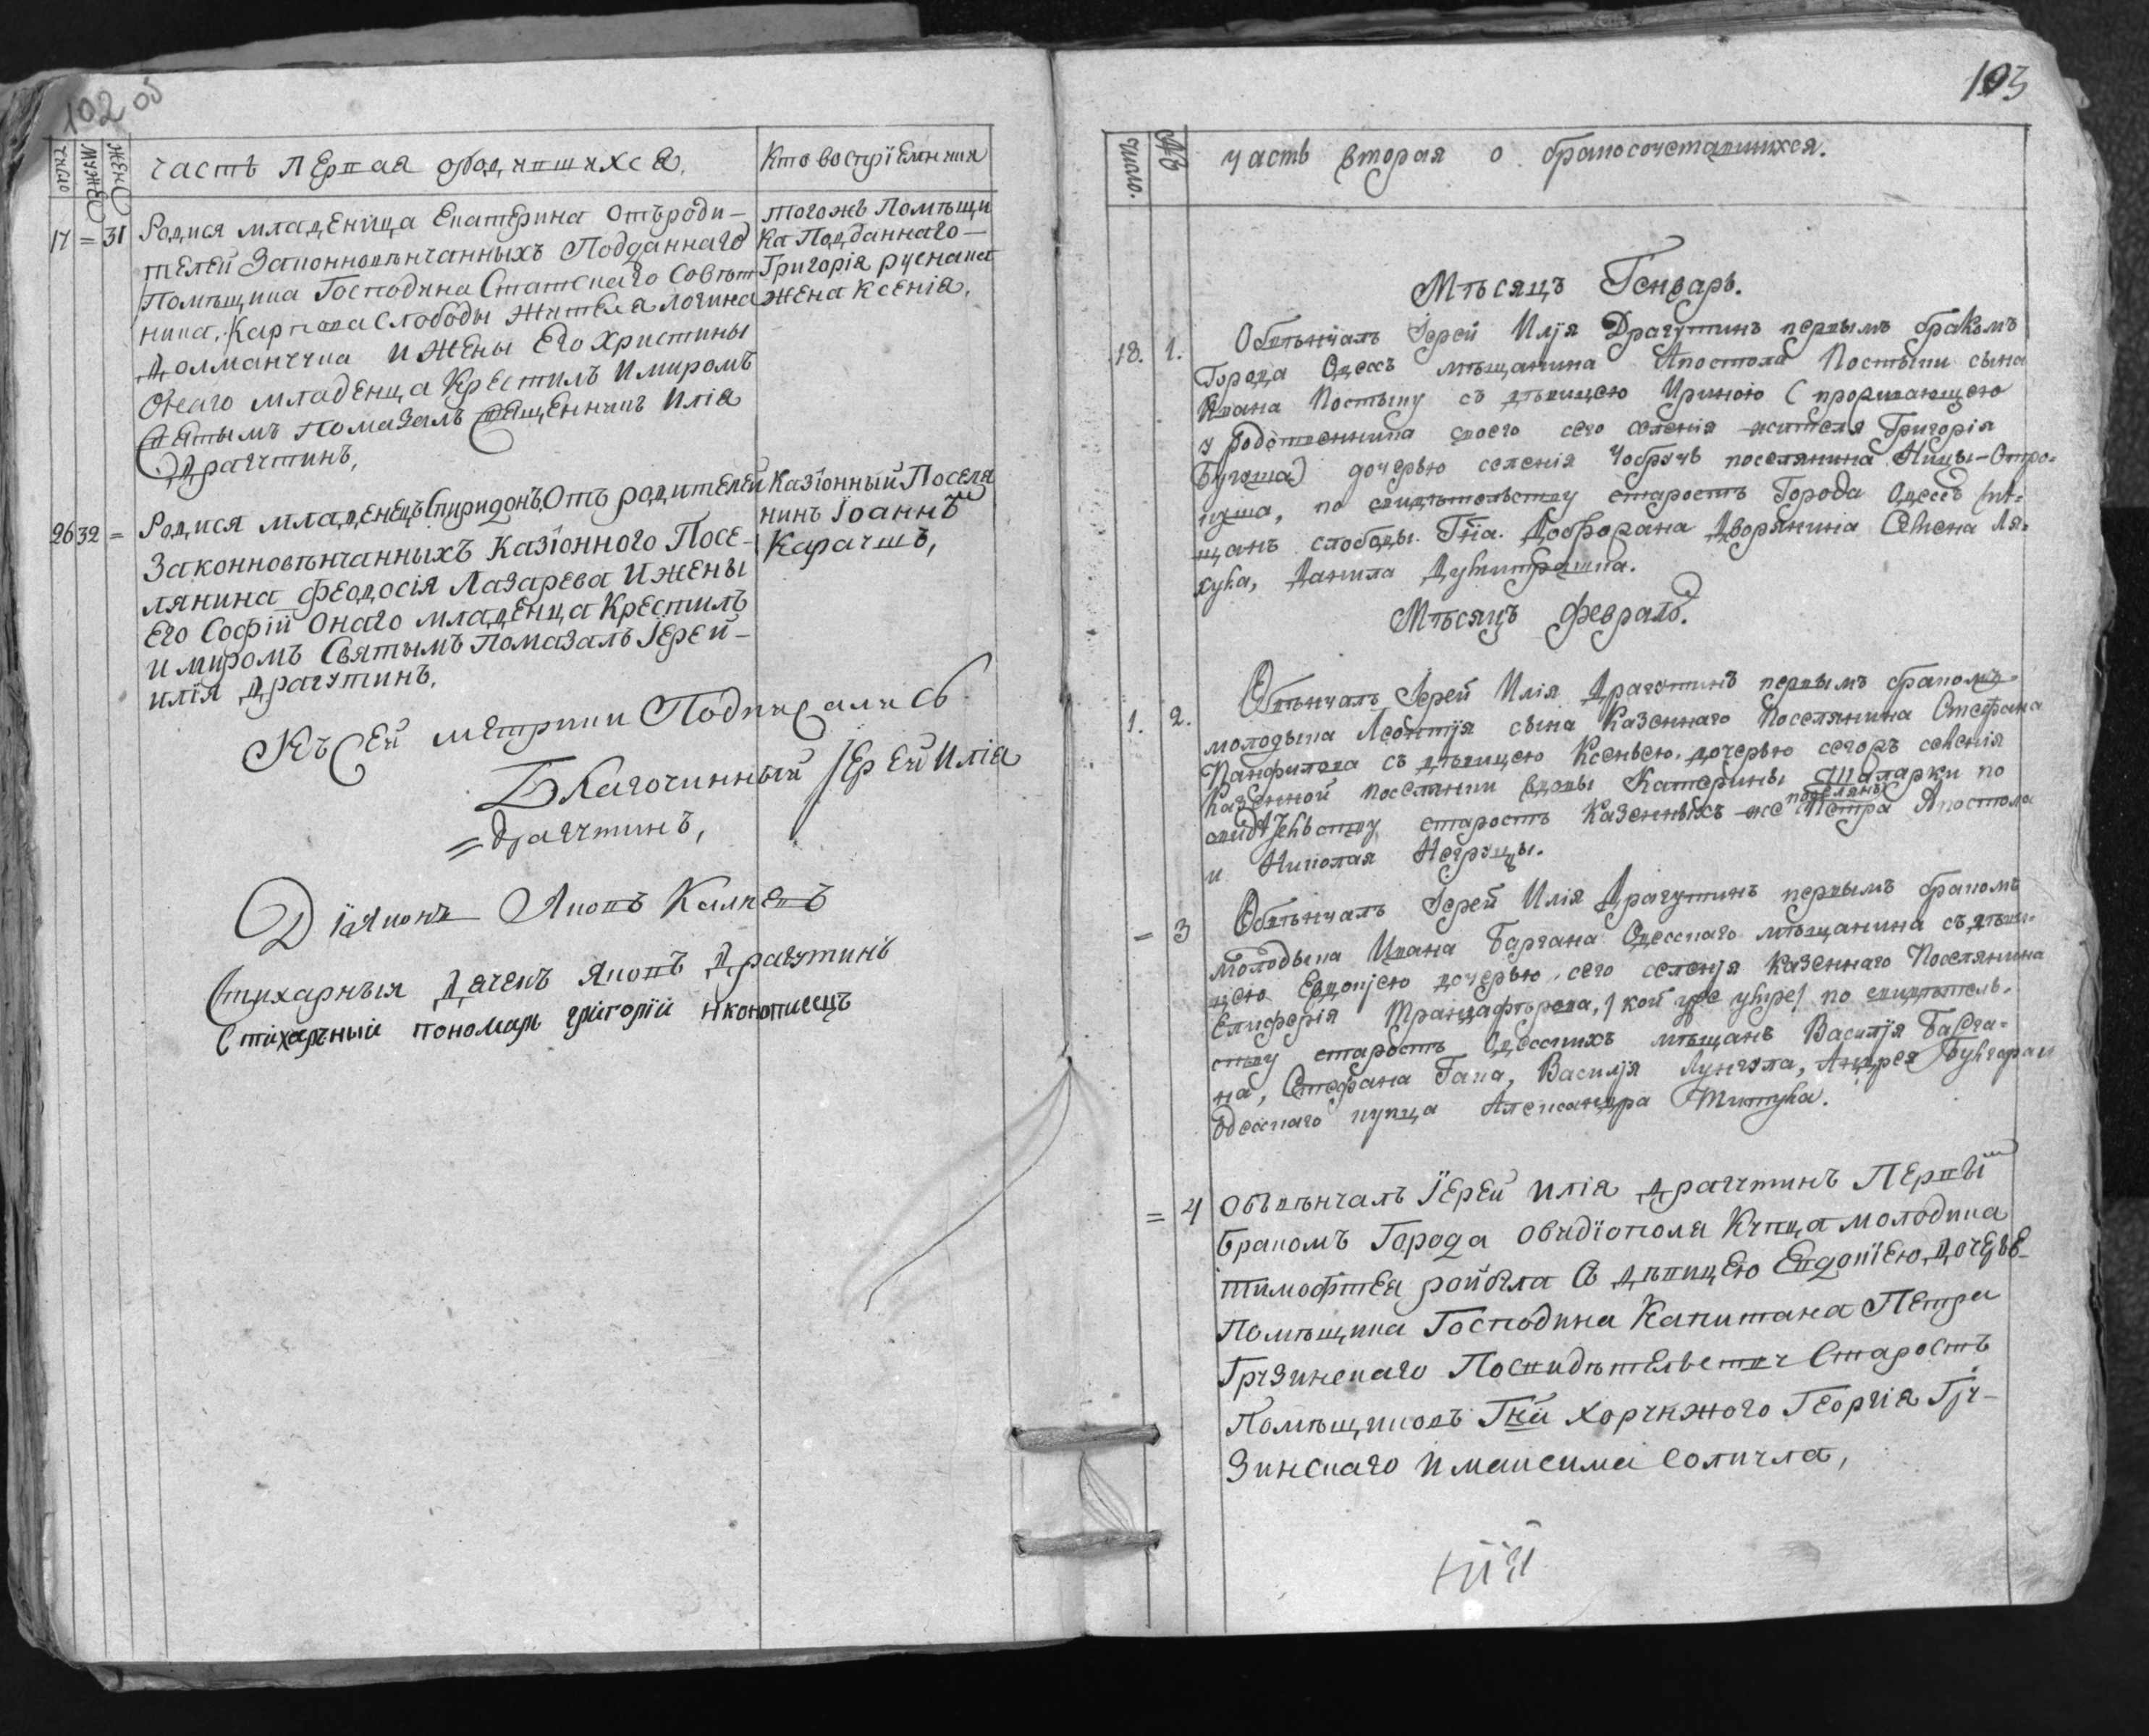 102 об
число
мужес
женс
часть первая ородившихся.
Кто воспріемники
17 = 31
Родися младенїца Екатерина отъроди-
телей Законновѣнчанныхъ Подданнаго
Помѣщика Господина Статскаго Совѣт
ника. Карпова Слободы жителя логина
долманччка и жены Его Христины
Онаго младенца Крестилъ имиромъ
Святымъ помазалъ Священникъ Илїа
Драгчтинъ,
тогожъ Помѣщи
ка Подданнаго-
Григорїа руснака
жена Ксенїа,
26 32 =
Родися младенецъ Спиридонъ, Отъ родителей
Законновѣнчанныхъ Казїонного Посе-
лянина феодосїя Лазарева и жены
Его Софїи Онаго младенца Крестилъ
и миромъ Святымъ помазалъ Іерей-
илїя драгутинъ,
Казїонный Поселя
нинъ Іоаннъ
Карачшъ,
Къ Сей метрики Подписались
Благочинный Іерей Илїа
= драгчтинъ,
Дїаконъ Яковъ Калневъ
Стихарныя дячекъ Яковъ Драгутинъ
Стіхарный пономарь григорїй иконописецъ
103
число.
часть вторая о бракосочетавшихся.
Мѣсяцъ Генварь.
18. 1.
Обвѣнчалъ Іерей Илїя Драгутинъ первымъ бракомъ
Города Одессъ мѣщанина Апостола Постыки сына
Ивана Постыку съ дѣвицею Ириною (проживающею
у родственника своего сего селенїя жителя Григорїя
Бугоша) дочерью селенїя Чобручъ поселянина Ницы-Отро-
куша, по свидѣтельству старостъ Города Одессъ мѣ-
щанъ слободы. Гна. Доброрана Дворянина Семена Ля-
хула, Данила Думитрашка.
Мѣсяцъ февраль.
1. 2.
Обвѣнчалъ Іерей Илїя Драгутинъ первымъ бракомъ
молодыка Леонтїя сына Казеннаго Поселянина Стефана
Панфилова съ дѣвицею Ксеньею. дочерью сегожъ селенїя
Казенной поселянки вдовы Катерины Шаларки по
свидѣтельству старостъ Казенныхъ же поселянъ Петра Апостола
и Николая Негруцы.
= 3
Обвѣнчалъ Іерей Илїя Драгутинъ первымъ бракомъ
молодыка Ивана Баргана Одесскаго мѣщанина съ дѣви-
цею Евдокїею дочерью сего селенїя Казеннаго Поселянина
Елиферїя Трандафѣрова, / кой уже умре / по свидѣтель-
ству старостъ Одесскихъ мѣщанъ Василїя Барга-
на, Стефана Гака, Василїя Лунгула, Андрея Булгара и
Одесскаго купца Александра Титула.
= 4
Обвѣнчалъ Іерей илїа драгчтинъ Первы
бракомъ Города Овидїополя Кчпца молодика
тимофтея ройбла Съ дѣвицею Евдокїею, дочерье
Помѣщика Господина Капитана Петра
Грчзинскаго Посвидѣтельствч Старостъ
Помѣщиковъ Гна Хорчнжого Георгїа Грч-
Зинскаго и максима солтчла,